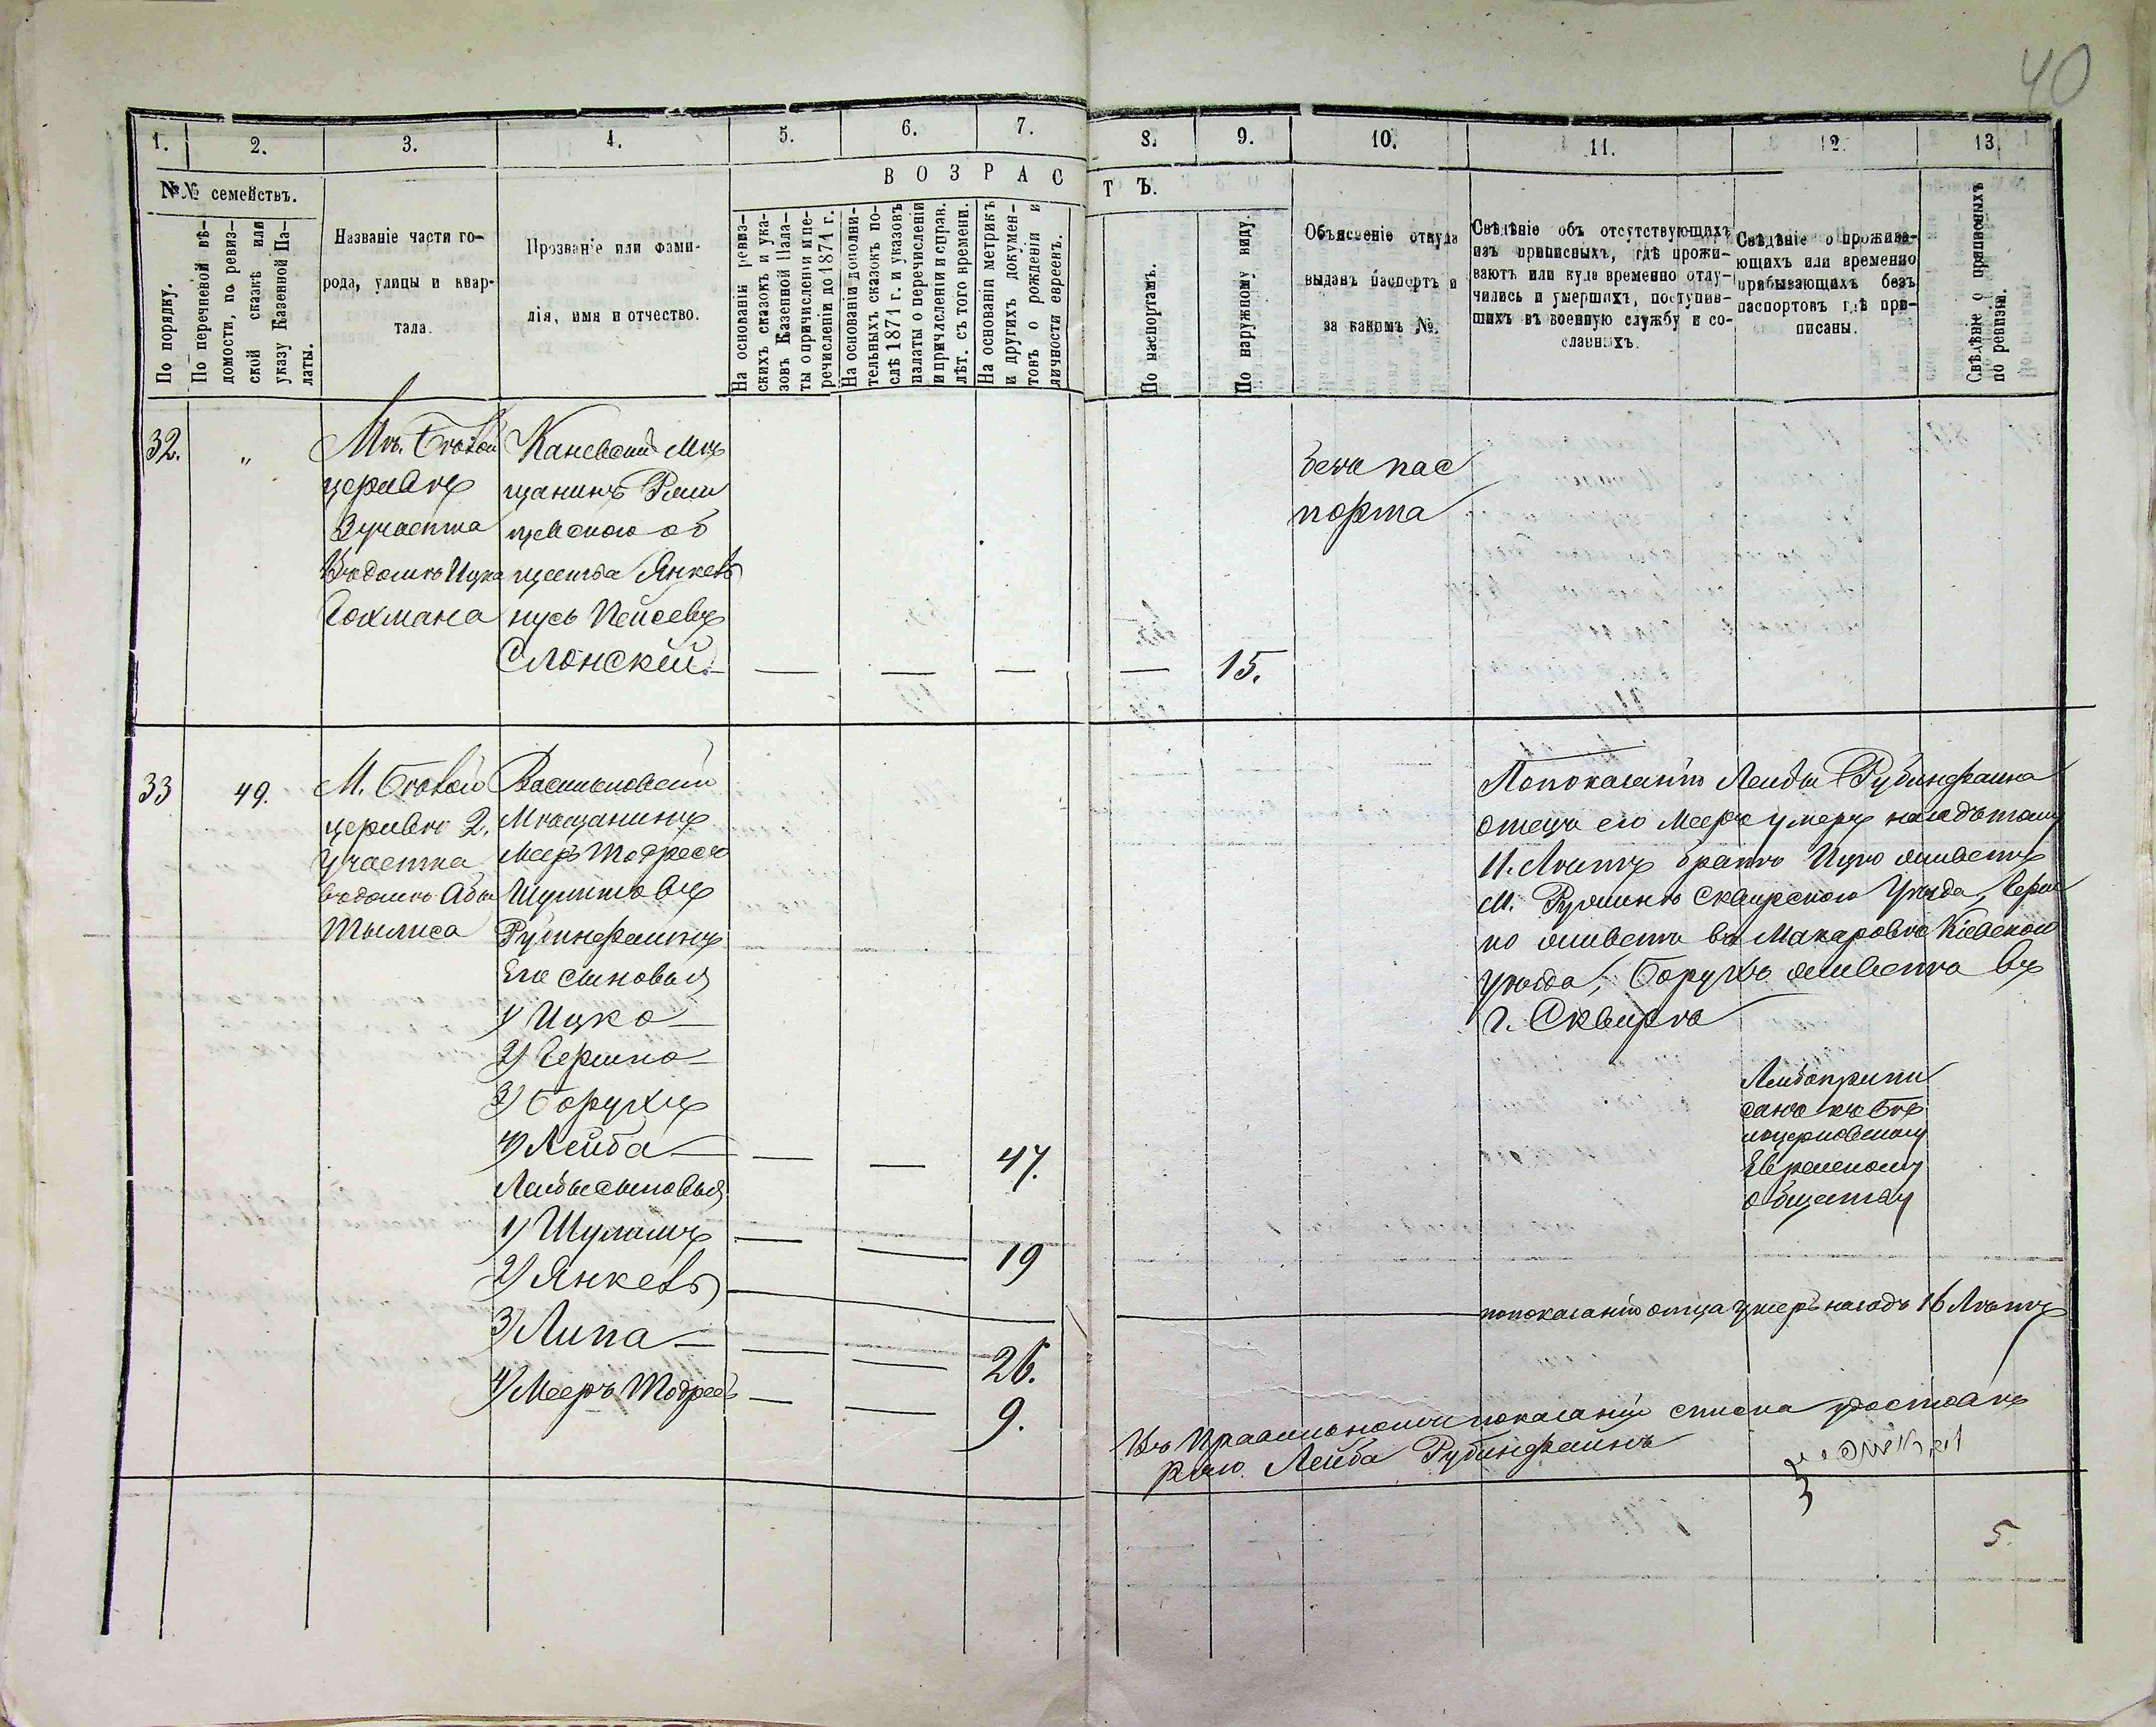 40
1. 2. 3. 4. 5. 6. 7. 8. 9. 10. 11. 12. 13.
№№ семействъ.
ВОЗРАСТЪ.
По порядку.
По перечневой вѣ-
домости, по ревиз-
ской сказкѣ или
указу Казенной Па-
латы.
Названіе части го-
рода, улицы и квар-
тала.
Прозваніе или фами-
лія, имя и отчество.
На основаніи ревиз-
скихъ сказокъ и ука-
зовъ Казенной Пала-
ты о причисленіи и пе-
речисленіи до 1871 г.
На основаніи дополни-
тельныхъ сказокъ по-
слѣ 1871 г. и указовъ
палаты о перечисленіи
и причисленіи и справ.
лѣт. съ того времени.
На основаніи метрикъ
и другихъ докумен-
товъ о рожденіи и
личности евреевъ.
По паспортамъ.
По наружному виду.
Объясненіе откуда
выданъ паспортъ и
за какимъ №.
Свѣдѣніе объ отсутствующихъ
изъ приписныхъ, гдѣ прожи-
ваютъ или куда временно отлу-
чились и умершихъ, поступив-
шихъ въ военную службу и со-
сланныхъ.
Свѣдѣніе о прожива-
ющихъ или временно
прибывающихъ безъ
паспортовъ гдѣ при-
писаны.
Свѣдѣніе о приписныхъ
по ревизіи.
32.
"
Мѣ. Бѣлой
церквѣ
3 участка
Въ домѣ Ицка
Гохмана
Каневскій Мѣ
щанинъ
об
щества Янкевъ
нусь Пейсевъ
Слонскій
15.
безъ пас
порта
33
49.
М. Бѣлой
церквѣ 2.
участка
въ домѣ Абы
Тылиса
Васильковскій
Мѣщанинъ
Мееръ Тодресъ
Шулимовъ
Рубинфаинъ
Его сыновья
1) Ицко
2) Гершко
3) Борухъ
4) Лейба 47.
Лейбы сыновья
1) Шулимъ 19
2) Янкевъ
3) Липа 26.
4) Мееръ Тодресъ 9.
По показанію Лейбы Рубинфаина
отецъ его Мееръ умеръ назадъ тому
11. Лѣтъ братъ Ицко живетъ
М. Ружинѣ Сквирскаго Уѣзда, Герш
ко живетъ въ Макаровѣ Кіевской
уѣзда, Борухъ живетъ въ
г. Сквирѣ
Лейба припи
санъ къ Бѣ
лоцерковскому
Еврейскому
обществу
по показанію отца умеръ назадъ 16 Лѣтъ
Въ правильномъ показаніи списка удостовѣ
ряю Лейба Рубинфаинъ
5.